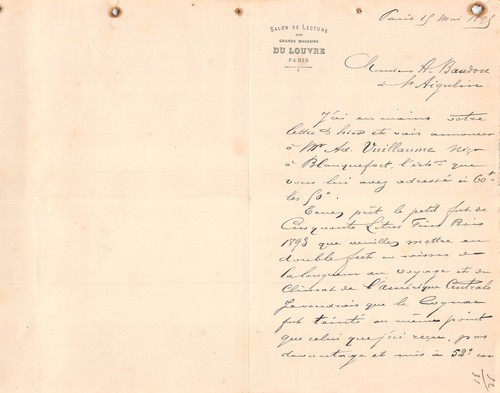 SALON DE LECTURE
DES
GRANDS MAGASINS
DU LOUVRE
PARIS
Paris 15 Mai 1895
Monsieur A. Baudou
à St Aigulin
J'ai en mains votre
lettre d'hier et vais annoncer
à Mr Ad. Vuillaume Négt
à Blanquefort, l'échon que
vous lui avez adressé à 60f
les 50°.
Tenez prêt le petit fût de
Cinquante Litres Fins Bois
1893 que veuillez mettre en
double fût en raison de
la longueur du voyage et du
Climat de l'Amérique Centrale
Je voudrais que le Cognac
fut teinté au même point
que celui que j'ai reçu, pas
davantage et mis à 52° en